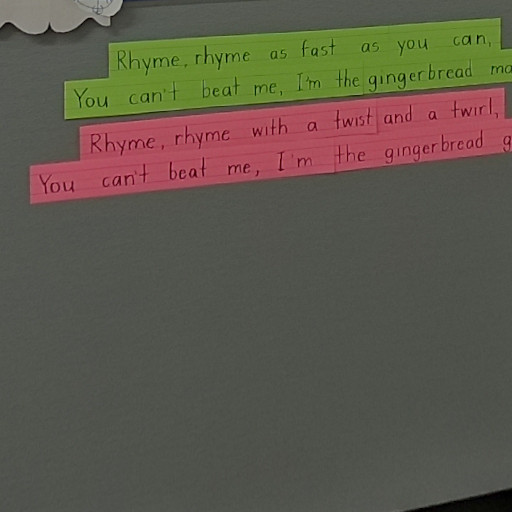 Rhyme, rhyme as fast as you can,
You can't beat me, I'm the gingerbread ma
Rhyme, rhyme with a twist and a twirl,
You can't beat me, I'm the gingerbread g